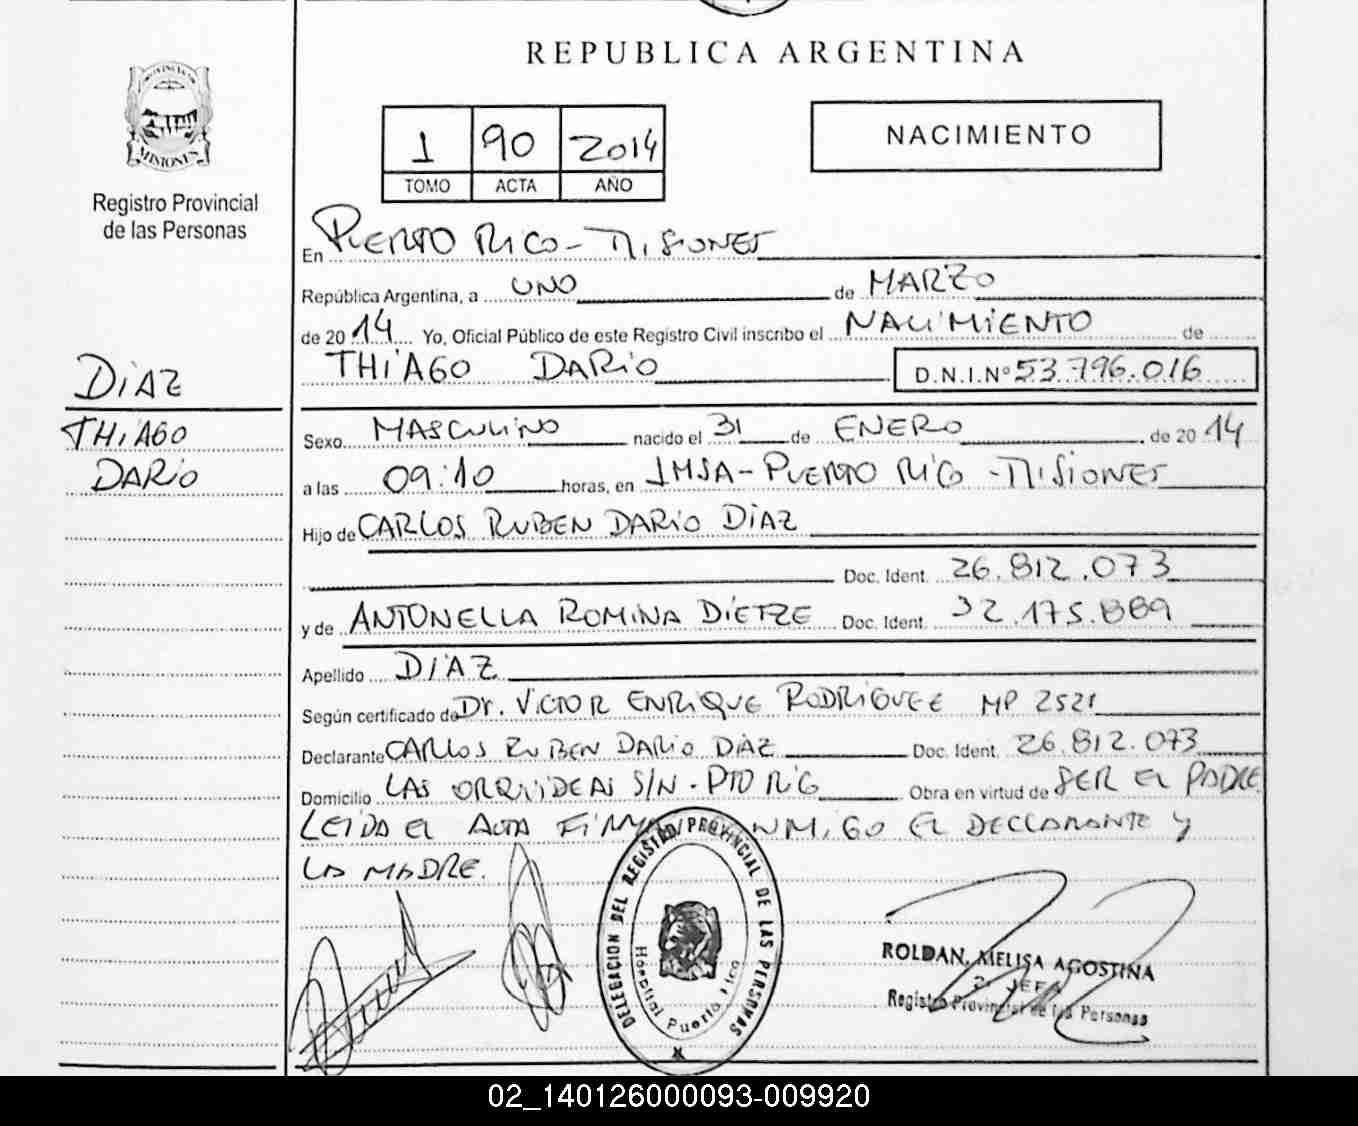 REPUBLICA ARGENTINA
PROVINCIA
MISIONES
Registro Provincial
de las Personas
1 90 2014
TOMO ACTA AÑO
NACIMIENTO
En PUERTO RICO - MISIONES
República Argentina, a UNO de MARZO
de 2014 Yo, Oficial Público de este Registro Civil inscribo el NACIMIENTO de
THIAGO DARIO D.N.I.Nº 53.796.016
DIAZ
THIAGO
DARIO
Sexo MASCULINO nacido el 31 de ENERO de 2014
a las 09:10 horas, en IMSA - PUERTO RICO - MISIONES
Hijo de CARLOS RUBEN DARIO DIAZ
Doc. Ident. 26.812.073
y de ANTONELLA ROMINA DIETZE Doc. Ident. 32.175.889
Apellido DIAZ
Según certificado de Dr. VICTOR ENRIQUE RODRIGUEZ MP 2521
Declarante CARLOS RUBEN DARIO DIAZ Doc. Ident. 26.812.073
Domicilio LAS ORQUIDEAS S/N - PTO RICO Obra en virtud de SER EL PADRE
LEIDA EL ACTA CONMIGO EL DECLARANTE Y
LA MADRE.
DELEGACION DEL REGISTRO PROVINCIAL DE LAS PERSONAS
Hospital Puerto Rico
ROLDAN, MELISA AGOSTINA
JEFA
Registro Provincial de las Personas
02_140126000093-009920